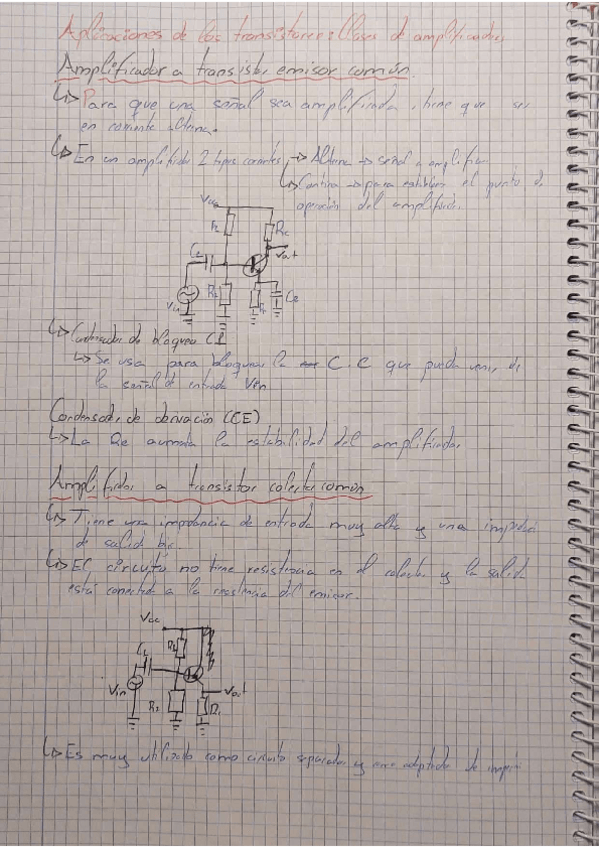 Aplicaciones de los transistores: Clases de amplificadores
Amplificador a transistor emisor común.
↳ Para que una señal sea amplificada, tiene que ser
en corriente alterna.
↳ En un amplificador 2 tipos corrientes, → Alterna → señal a amplificar
↳ Continua → para establecer el punto de
operación del amplificador.
Vcc
Rc
Vout
R2
CE
Vin
↳ Condensador de bloqueo C1
↳ Se usa para bloquear la C.C que pueda venir de
la señal de entrada Vin
Condensador de derivación (CE)
↳ La Re aumenta la estabilidad del amplificador
Amplificador a transistor colector común
↳ Tiene una impedancia de entrada muy alta y una
de salida baja.
↳ El circuito no tiene resistencia en el colector y la salida
está conectada a la resistencia del emisor.
Vcc
C1
Vin
R2
Vout
↳ Es muy utilizado como circuito separador y como adaptador de